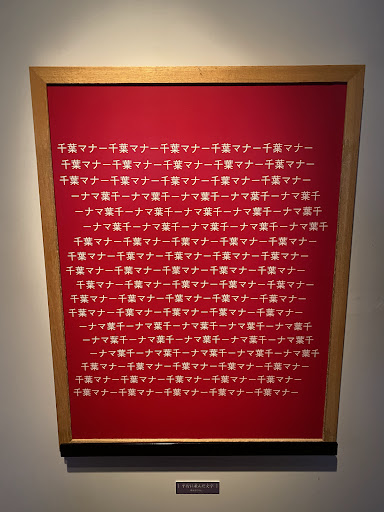 千葉マナー千葉マナー千葉マナー千葉マナー千葉マナー
千葉マナー千葉マナー千葉マナー千葉マナー千葉マナー
千葉マナー千葉マナー千葉マナー千葉マナー千葉マナー
ーナマ葉千ーナマ葉千ーナマ葉千ーナマ葉千ーナマ葉千
ーナマ葉千ーナマ葉千ーナマ葉千ーナマ葉千ーナマ葉千
ーナマ葉千ーナマ葉千ーナマ葉千ーナマ葉千ーナマ葉千
千葉マナー千葉マナー千葉マナー千葉マナー千葉マナー
千葉マナー千葉マナー千葉マナー千葉マナー千葉マナー
千葉マナー千葉マナー千葉マナー千葉マナー千葉マナー
千葉マナー千葉マナー千葉マナー千葉マナー千葉マナー
千葉マナー千葉マナー千葉マナー千葉マナー千葉マナー
千葉マナー千葉マナー千葉マナー千葉マナー千葉マナー
ーナマ葉千ーナマ葉千ーナマ葉千ーナマ葉千ーナマ葉千
ーナマ葉千ーナマ葉千ーナマ葉千ーナマ葉千ーナマ葉千
ーナマ葉千ーナマ葉千ーナマ葉千ーナマ葉千ーナマ葉千
千葉マナー千葉マナー千葉マナー千葉マナー千葉マナー
千葉マナー千葉マナー千葉マナー千葉マナー千葉マナー
千葉マナー千葉マナー千葉マナー千葉マナー千葉マナー